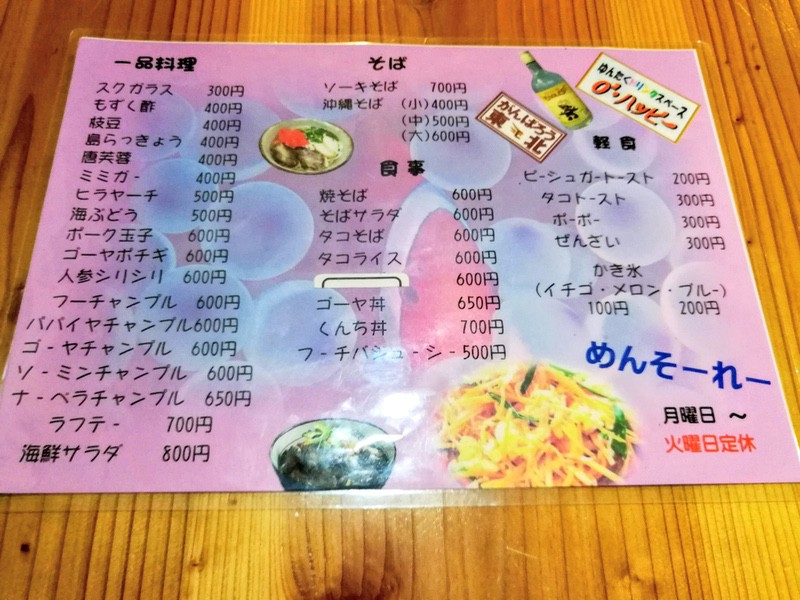 一品料理
スクガラス 300円
もずく酢 400円
枝豆 400円
島らっきょう 400円
唐芙蓉 400円
ミミガー 400円
ヒラヤーチ 500円
海ぶどう 500円
ポーク玉子 600円
ゴーヤポチギ 600円
人参シリシリ 600円
フーチャンプル 600円
パパイヤチャンプル600円
ゴーヤチャンプル 600円
ソーミンチャンプル 600円
ナーベラチャンプル 650円
ラフテー 700円
海鮮サラダ 800円
そば
ソーキそば 700円
沖縄そば (小)400円
(中)500円
(大)600円
食事
焼そば 600円
そばサラダ 600円
タコそば 600円
タコライス 600円
600円
ゴーヤ丼 650円
くんち丼 700円
フーチバジューシー500円
がんばろう
東北
ゆんたくドリンクスペース
O'ハッピー
軽食
ピーシュガートースト 200円
タコトースト 300円
ポーポー 300円
ぜんざい 300円
かき氷
(イチゴ・メロン・ブルー)
100円 200円
めんそーれー
月曜日 〜
火曜日定休